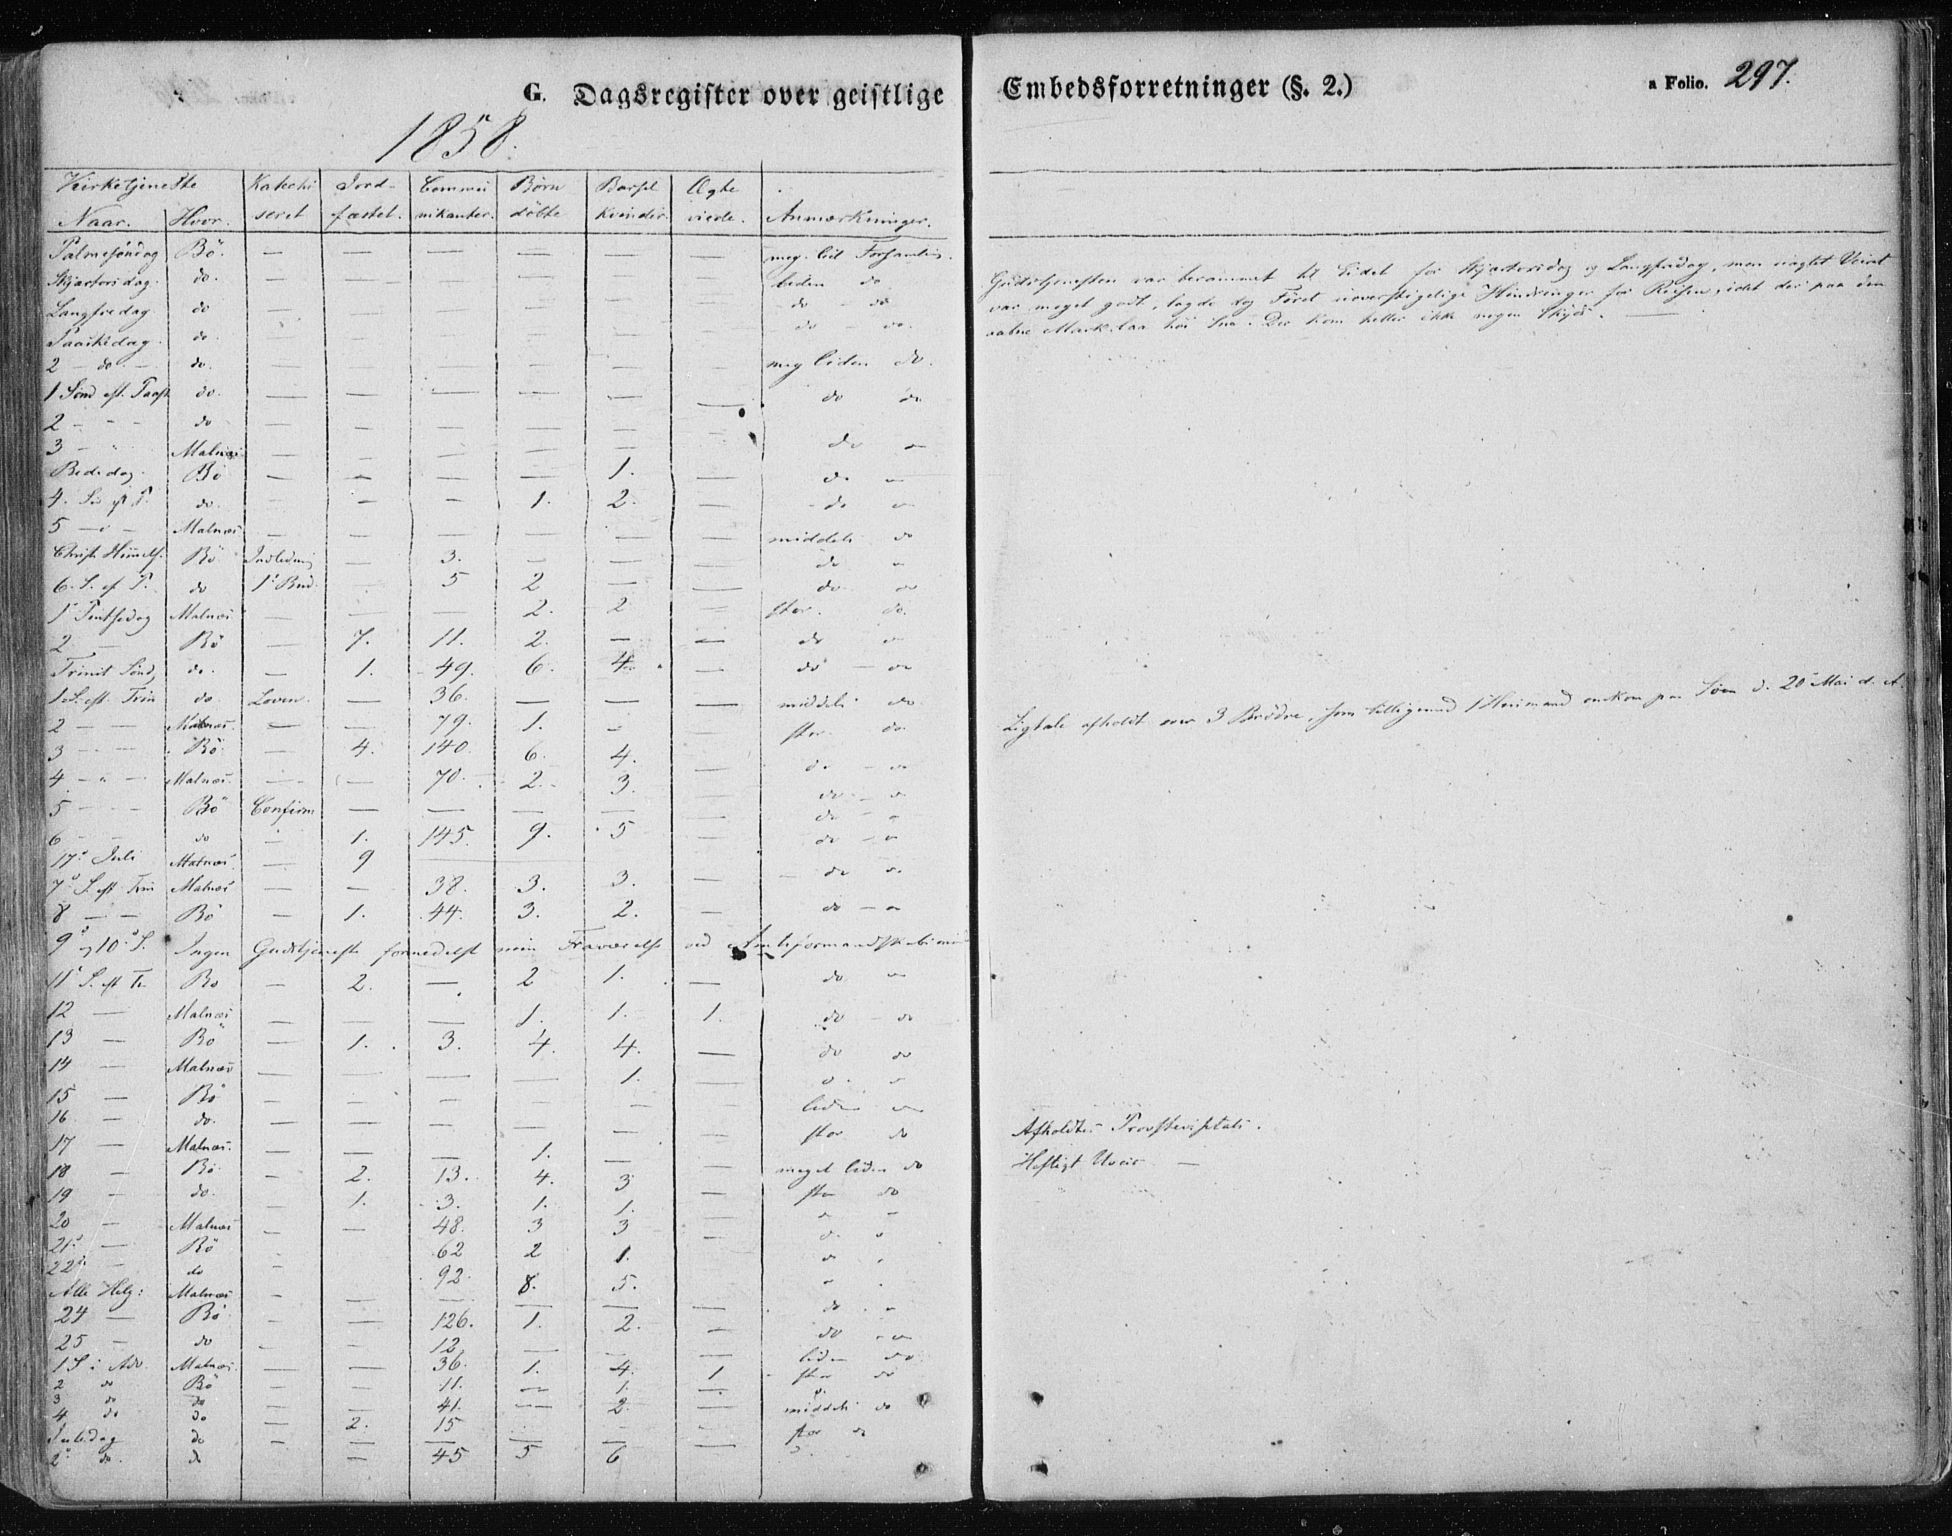 G. Dagsregister over geistlige Embedsforretninger (§. 2.) a Folio. 297.
1858.
Kirketjeneste Katechi Jord- Commu Børn Barsel Ægte
Naar. Hvor. seret fæstet. nikanter. döbte kvinder. viede. Anmærkninger.
Palmesöndag Bö. — — — — — — meg. lid Forsamlin.
Skjærtorsdag. do. — — — — — — liden do
Langfredag do — — — — — — do do
Paaskedag. do. — — — — — — do do.
2 — do — do. — — — — — — meg liden do.
1 Sönd eft. Paask do. — — — — — — do do
2 — — do — — — — — —
3 — Malnæs — — — — — — do —
Bededag. Bö — — — — 1. — do —
4. S. ef. P. do. — — — 1. 2. — do —
5 — Malnæs — — — — — — middels do
Christi Himmelf. Bö Indledning — 3. — — — do —
6. S. ef P. do 1ste Bud. — 5 2 — — do —
1ste Pintsedag Malnæs — — — 2. 2 — stor. do.
2 — Bö — 7. 11. 2. — — do —
Trinit Sönd. do. — 1. 49. 6. 4. — do —
1 S. eft. Trin do. Loven. — 36. — — — middels do
2 — Malnæs. — — 79. 1. — — stor do
3 — — Bö — 4. 140. 6. 4. — do —
4 — — Malnæs. — — 70. 2. 3. — do —
5 — — Bö Confirm — — — — — do —
6 — — do — 1. 145. 9. 5 do —
17de Juli Malnæs. — 9 — do —
7de S. eft Trin Malnæs — — 38. 3. 3. — do —
8 — — Bö — 1. 44. 3. 2. — do —
9de og 10de S. Ingen Gudstjeneste formedelst min Fraværelse ved Amtsformandskabsmöde
11 S. eft Tr. Bö — 2. — 2 1. — do —
12 — Malnæs — — — 1. 1. 1. do — do
13 — Bö — 1. 3. 4. 4. — do do
14 — Malnæs — — — — 1. —
15 — Bö — — — — — — liden —
16 — do. — — — — — — stor do
17 — Malnæs. — — — 1. — —
18 — Bö — 2. 13. 4. 3 — meget liden do
19 — do. — 1. 3. 1. 1. — stor do
20 — Malnæs — — 48. 3 3 —
21de — Bö — 62 2 1.
22de — do — 92. 8. 5.
Alle Helg: Malnæs — — — — — — do —
24 — Bö — — 126. 1. 2. — do —
25 — do — — 12 — — — liden do
1 S i Adv. Malnæs. — — 36. 1. 4. 1 stor do
2 do Bö — — 11. — 1. —
3 do do — — 41. — 2. — middels do
4 do do — 2. 15
Juledag do — — — — — — stor do
2 do. do — 45 5 6
Gudstjenesten var berammet til Eidet for Skjærtorsdag og Langfredag, men uagtet Veiret
var meget godt, lagde dog Föret uoverstigelige Hindringer for Reisen, idet der paa den
aabne Mark laa höi Sne. Der kom heller ikke nogen Skyds. —
Ligtale afholdt over 3 Brödre, som tilligemed 1 Huusmand omkom paa Söen d. 20de Mai d. A.
Afholdtes Provstevisitats.
Heftigt Uveir —